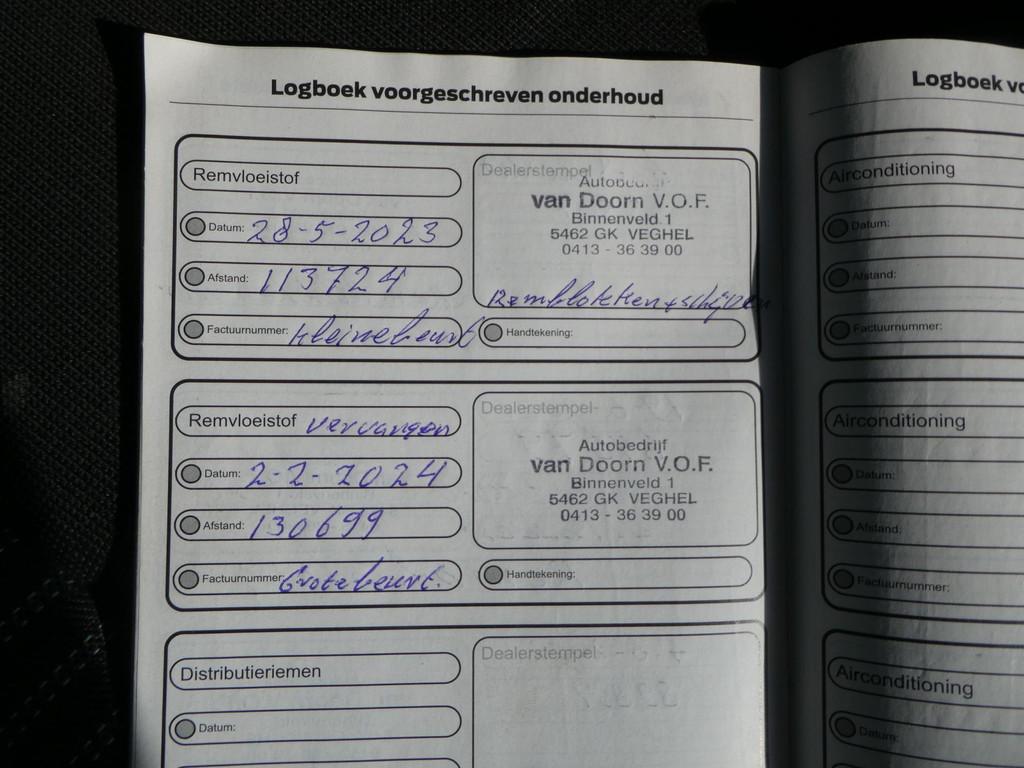 Logboek voorgeschreven onderhoud
Remvloeistof
Datum: 28-5-2023
Afstand: 113724
Factuurnummer: Kleine beurt
Dealerstempel
van Doorn V.O.F.
Binnenveld 1
5462 GK VEGHEL
0413 - 36 39 00
Remblokken + schijven
Handtekening:
Remvloeistof vervangen
Datum: 2-2-2024
Afstand: 130699
Factuurnummer Grote beurt.
Dealerstempel
Autobedrijf
van Doorn V.O.F.
Binnenveld 1
5462 GK VEGHEL
0413 - 36 39 00
Handtekening:
Distributieriemen
Datum:
Dealerstempel
Logboek
Airconditioning
Datum:
Afstand:
Factuurnummer:
Airconditioning
Datum:
Afstand:
Factuurnummer:
Airconditioning
Datum: